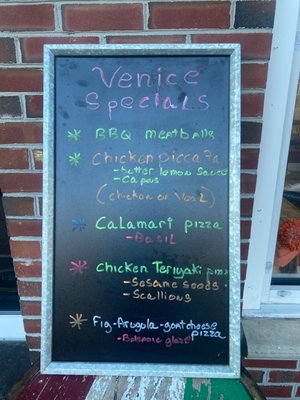 Venice
Specials
* BBQ meatballs
* Chicken piccata
- butter lemon sauce
- Capers
(chicken or Veal)
* Calamari pizza
- Basil
* Chicken Teriyaki pizza
- Sesame seeds
- Scallions
* Fig-Arugula-goat cheese
pizza
- Balsamic glaze